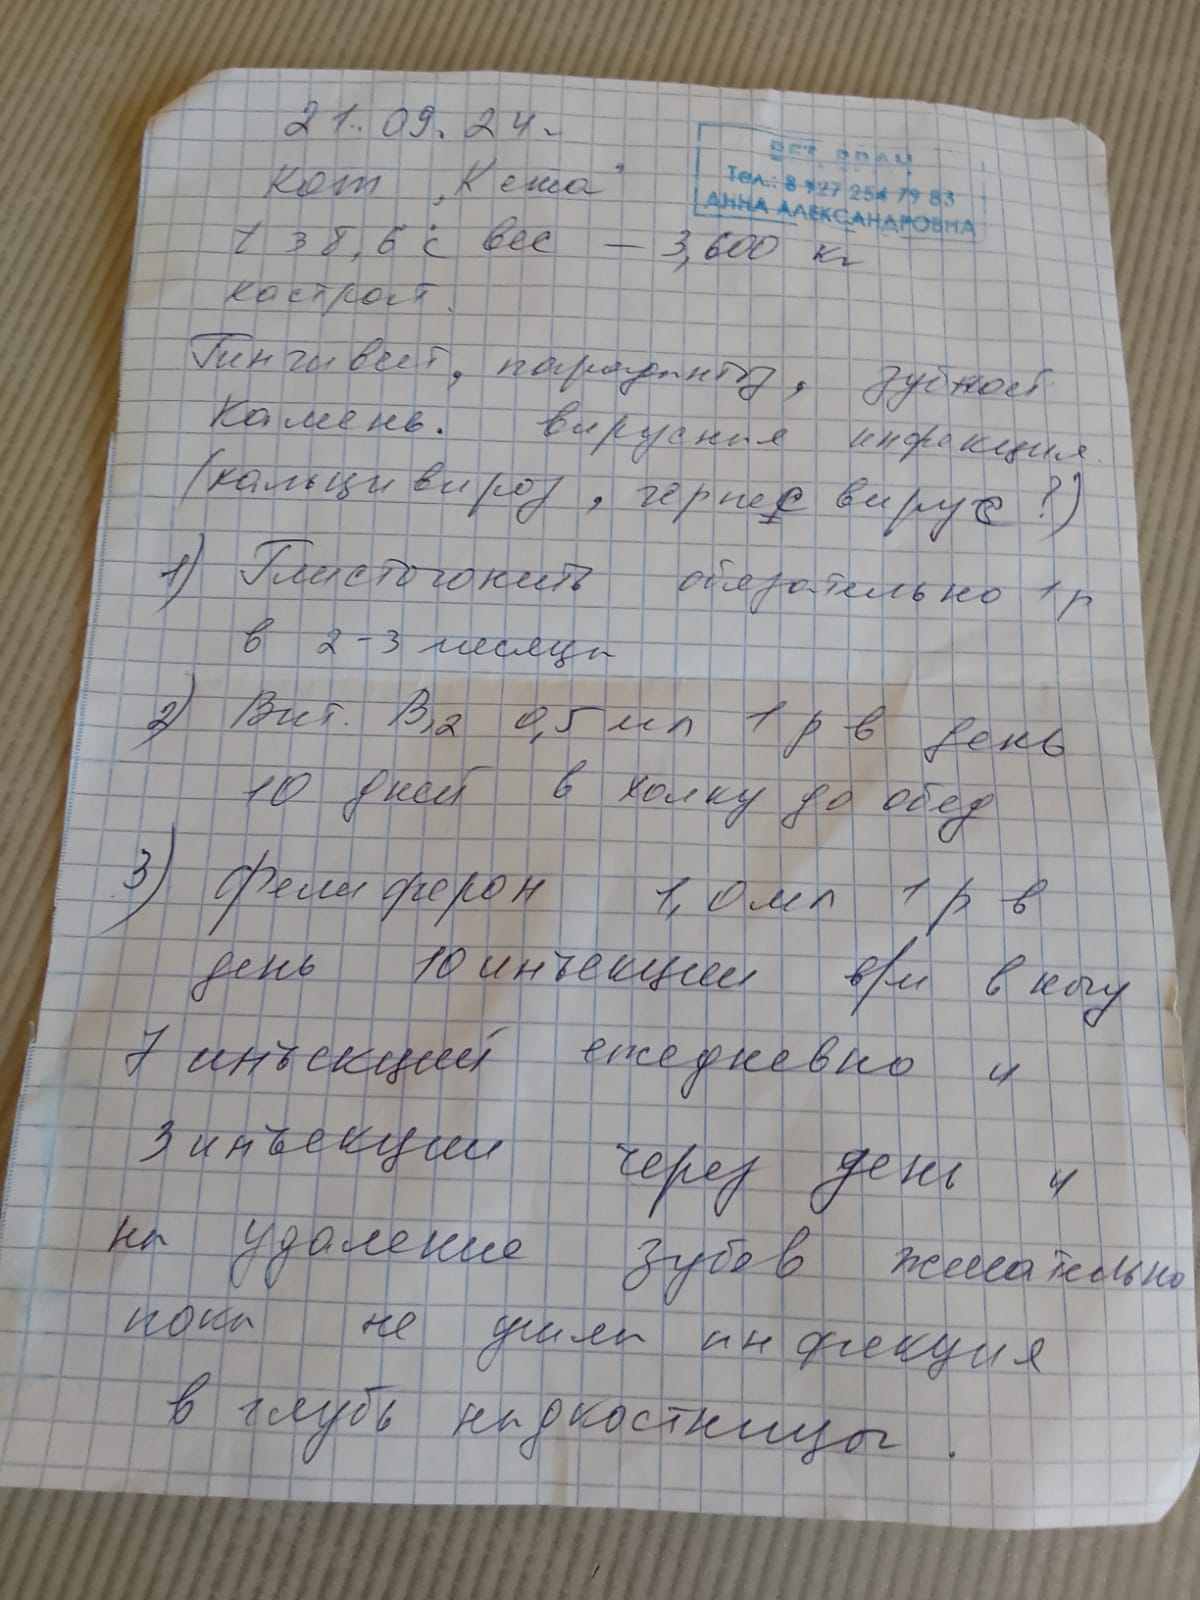 21.09.24.
ВЕТ. ВРАЧ
Тел.: 8 927 254 79 83
АННА АЛЕКСАНДРОВНА
Кот "Кеша"
Т 38,6 °С вес — 3,600 кг
кастрат.
Гингивит, парадонтоз, зубной
камень. вирусная инфекция.
(кальцивироз, герпес вирус?)
1) Глистогонить обязательно 1 р
в 2-3 месяцы
2) Вит. В12 0,5 мл 1 р в день
10 дней в холку до обед
3) Фелиферон 1,0 мл 1 р в
день 10 инъекции в/м в ногу
7 инъекций ежедневно и
3 инъекции через день и
на удаление зубов желательно
пока не ушла инфекция
в глубь надкостницы.